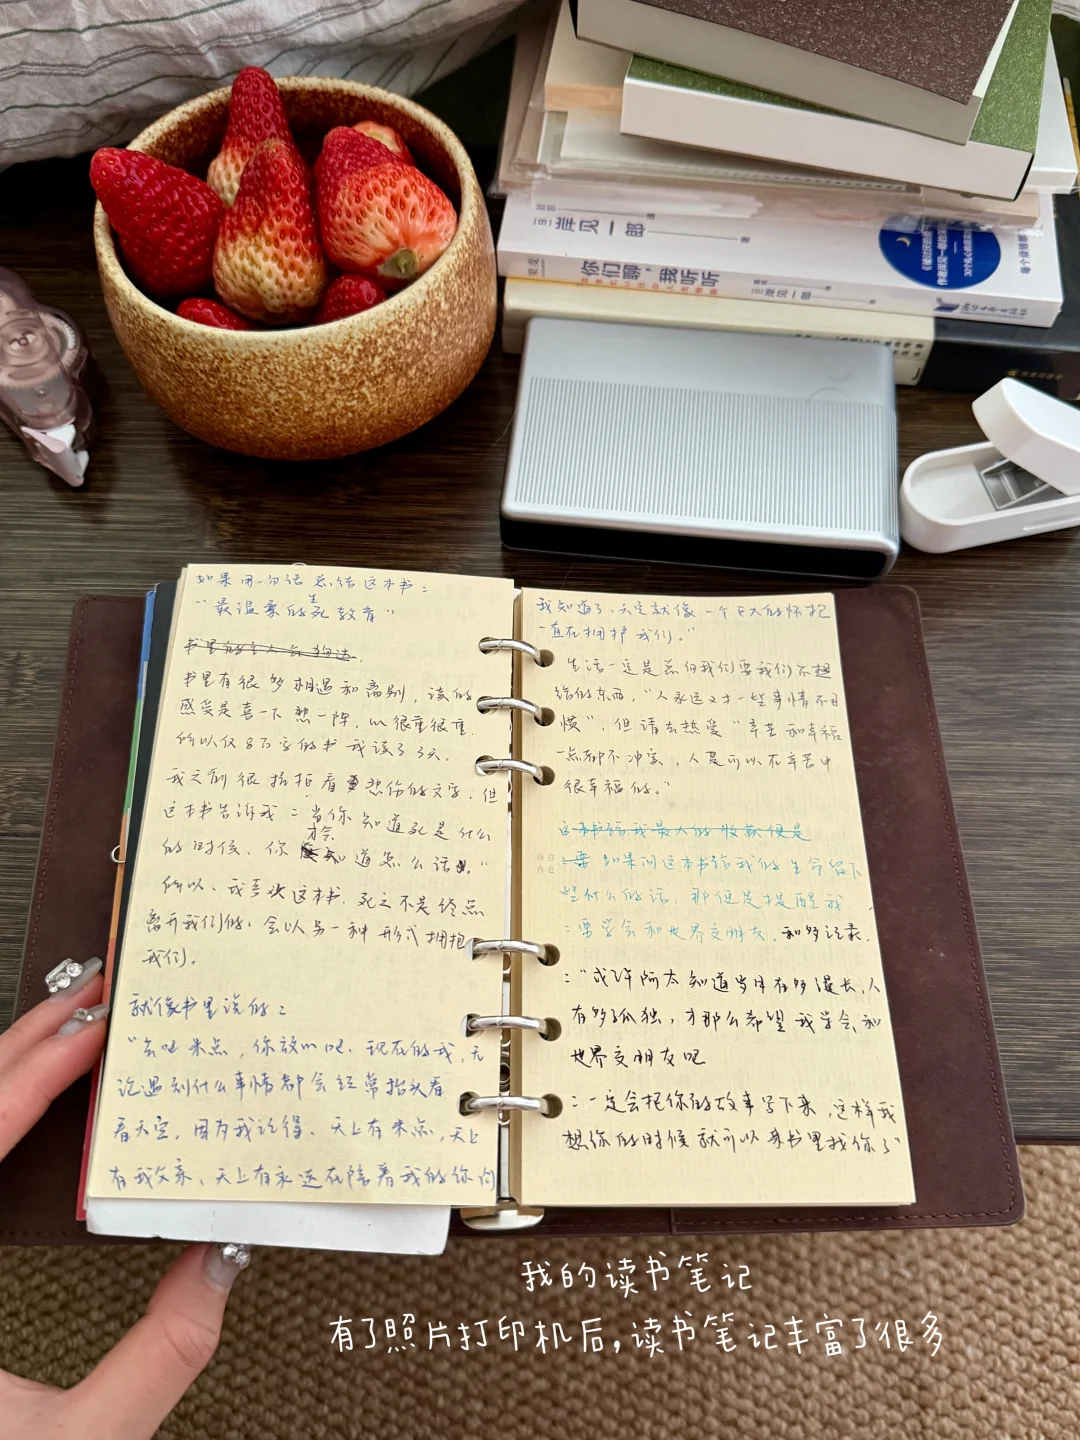 [日] 岸见一郎 著
你们聊，我听听
[日] 岸见一郎
如果用一句话总结这本书：
“最温柔的生死教育”
书里的主人公
书里有很多相遇和离别，读的
感受是喜一下愁一阵，心很重很重.
所以仅8万字的书我读了3天.
我之前很抗拒看悲伤的文字.但
这本书告诉我：当你知道死是什么
的时候、你才会知道怎么活。”
所以、我喜欢这本书.死亡不是终点
离开我们的、会以另一种形式拥抱
我们.
就像书里说的：
“去吧米点，你放心吧.现在的我,无
论遇到什么事情都会经常抬头看
看天空，因为我记得、天上有米点,天上
有我父亲、天上有永远在陪着我的你们
我知道了、天空就像一个巨大的怀抱
一直在拥护我们。”
生活一定是总向我们要我们不想
给的东西，“人永远又才一些事情不习
惯”，但请去热爱“辛苦和幸福
一点都不冲突，人是可以在辛苦中
很幸福的。”
这本书给我最大的收获便是
如果问这本书给我的生命留下
些什么的话、那便是提醒我
：要学会和世界交朋友，和多记录.
：“或许阿太知道岁月有多漫长,人
有多孤独，才那么希望我学会和
世界交朋友吧
：一定会把你的故事写下来,这样我
想你的时候就可以来书里找你了”
我的读书笔记
有了照片打印机后,读书笔记丰富了很多